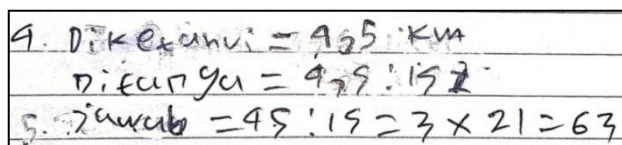 4. Diketahui = 4,5 km
Ditanya = 4,5 : 15
5. Jawab = 45 : 15 = 3 x 21 = 63